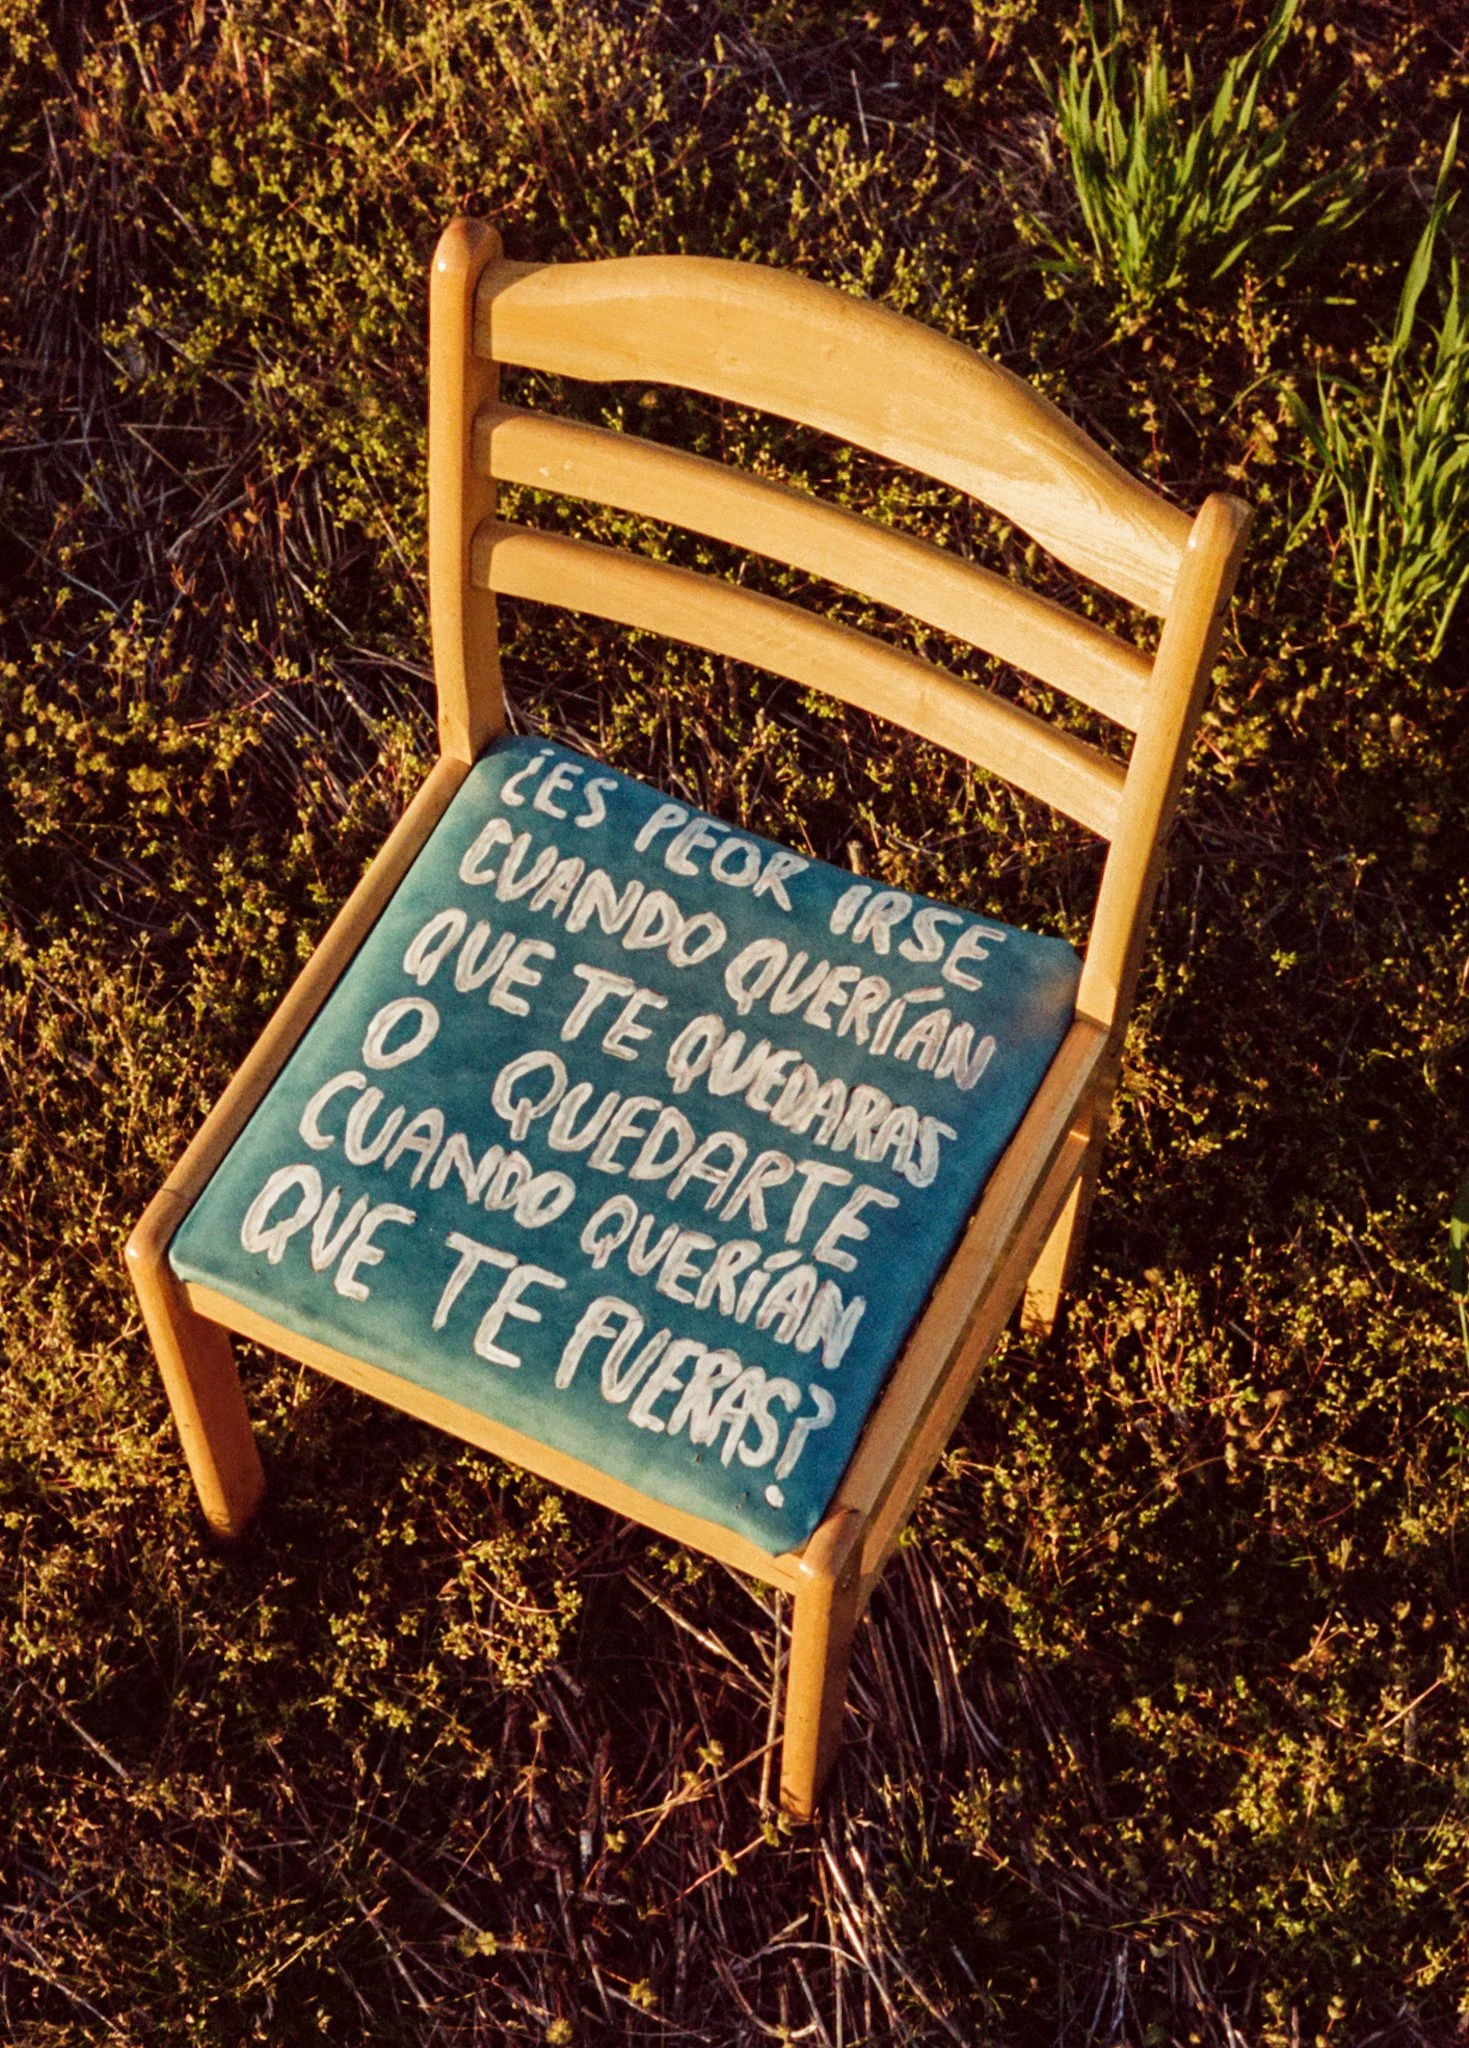 ¿ES PEOR IRSE
CUANDO QUERÍAN
QUE TE QUEDARAS
O QUEDARTE
CUANDO QUERÍAN
QUE TE FUERAS?